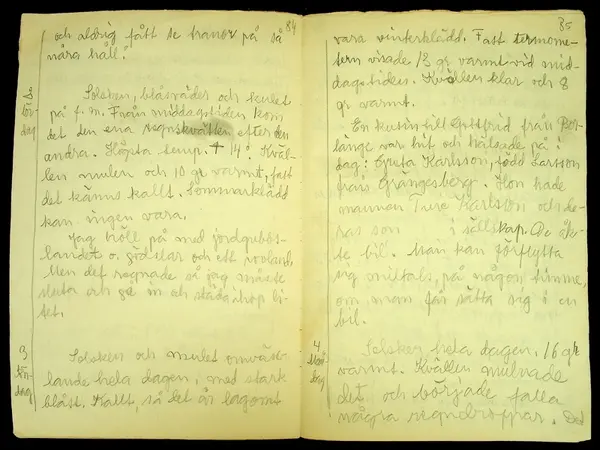 84
och aldrig fått se tranor på så
nära håll.
2
lör-
dag
Solsken, blåsväder och kulet
på f.m. Från middagstiden kom
det den ena regnskvätten efter den
andra. Högsta temp. + 14°. Kväl-
len mulen och 10 gr varmt, fast
det känns kallt. Sommarklädd
kan ingen vara.
Jag höll på med jordgubbs-
landet o. gödslar och ett
Men det regnade så jag måste
sluta och gå in och städa ihop li-
tet.
3
sön-
dag
Solsken och mulet omväx-
lande hela dagen, med stark
blåst. Kallt, så det är lagomt
85
vara vinterklädd. Fast termome-
tern visade 13 gr varmt vid mid-
dagstiden. Kvällen klar och 8
gr varmt.
En kusin till Gottfrid från Bor-
länge var hit och hälsade på i
dag: Greta Karlsson, född Larsson
från Grängesberg. Hon hade
mannen Ture Karlsson och de-
ras son i sällskap. De åk-
te bil. Man kan förflytta
sig miltals, på någon timme,
om man får sätta sig i en
bil.
4
mån-
dag
Solsken hela dagen, 16 gr
varmt. Kvällen mulnade
det och började falla
några regndroppar. Det